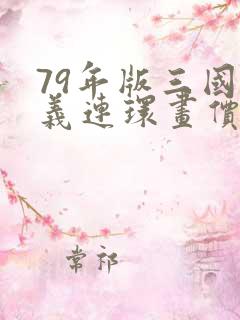 79年版三國
義連環畫價
常祁